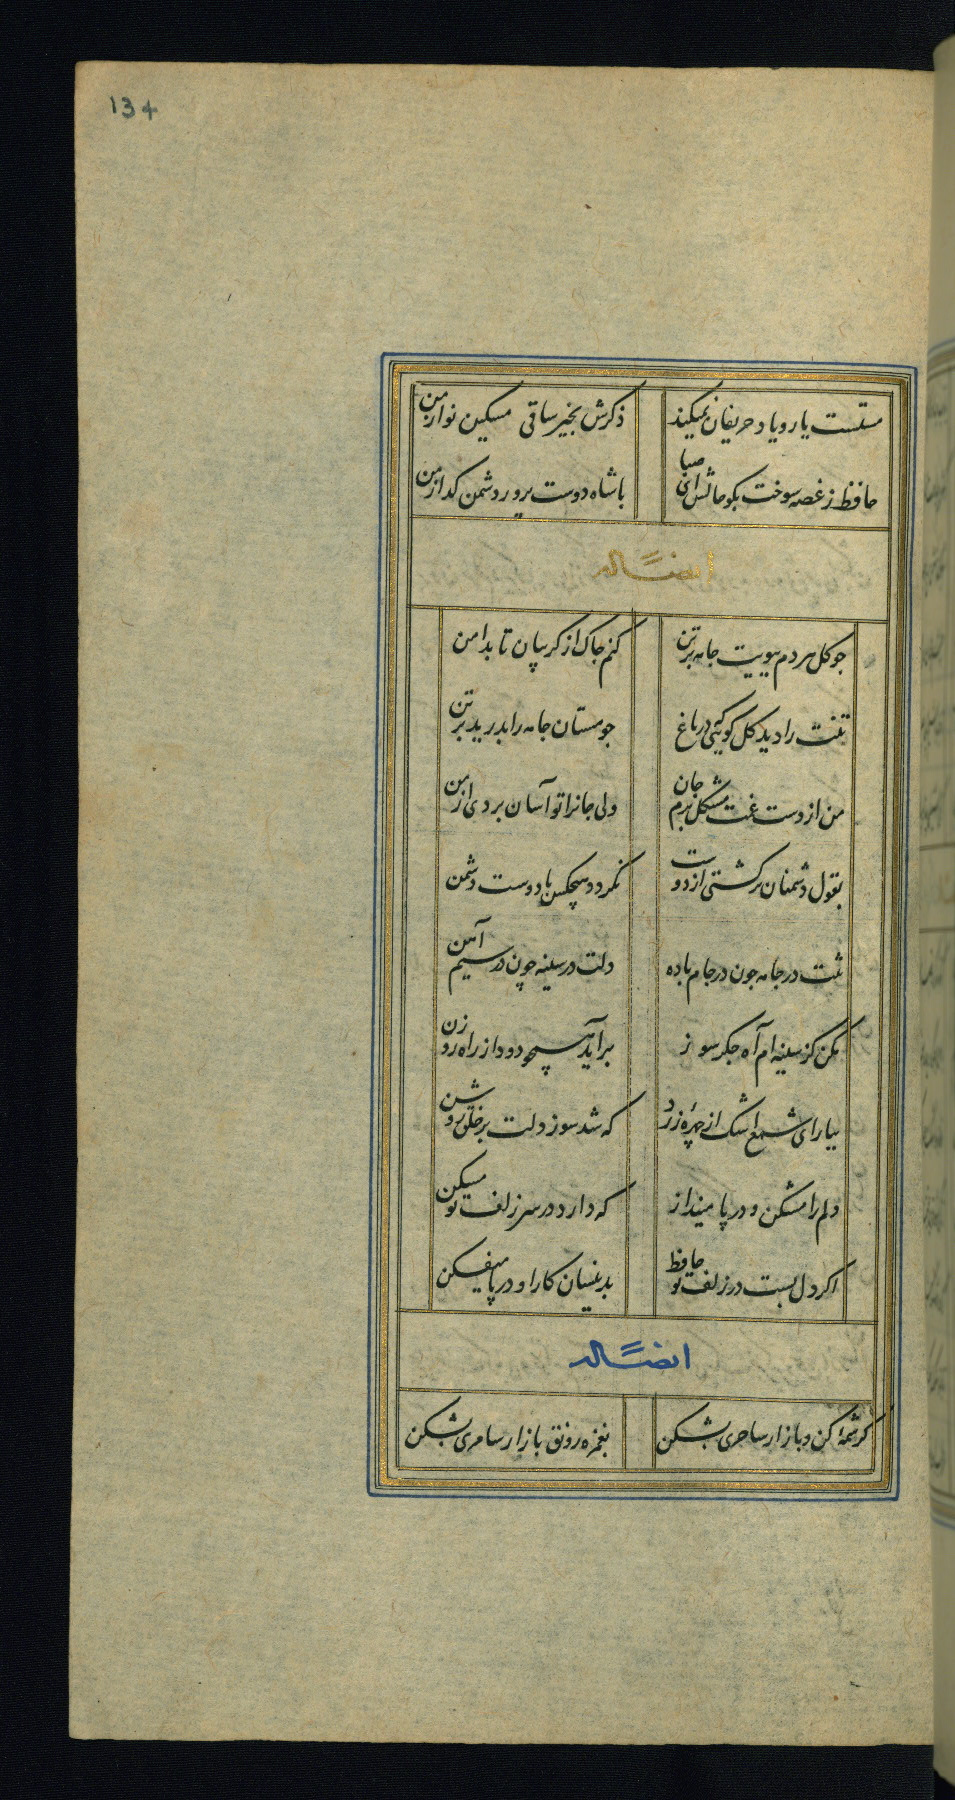 134
مستست یار و یاد حریفان نمیکند ذکرش بخیر ساقی مسکین نواز من
حافظ ز غصه سوخت بکو حالش ای صبا با شاه دوست پرور دشمن کداز من
ایضاً له
جو کل هر دم ببویت جامه بر تن کنم جاک از کریبان تا بدامن
تنت را دید کل کویی که در باغ جو مستان جامه را بدرید بر تن
من از دست غمت مشکل برم جان ولی جانرا تو آسان بردی از من
بقول دشمنان برکشتی از دوست نکردد هیچکس با دوست دشمن
تنت در جامه جون در جام باده دلت در سینه چون در سیم آهن
مکن کز سینه ام آه جکر سوز برآید همچو دود از راه روزن
ببار ای شمع اشک از چهرۀ زرد که شد سوز دلت بر خلق روشن
دلم را مشکن و در پا مینداز که دارد در سر زلف تو مسکن
اکر دل بست در زلف تو حافظ بدینسان کار او در پا میفکن
ایضاً له
کرشمۀ کن و بازار ساحری بشکن بغمزه رونق بازار سامری بشکن